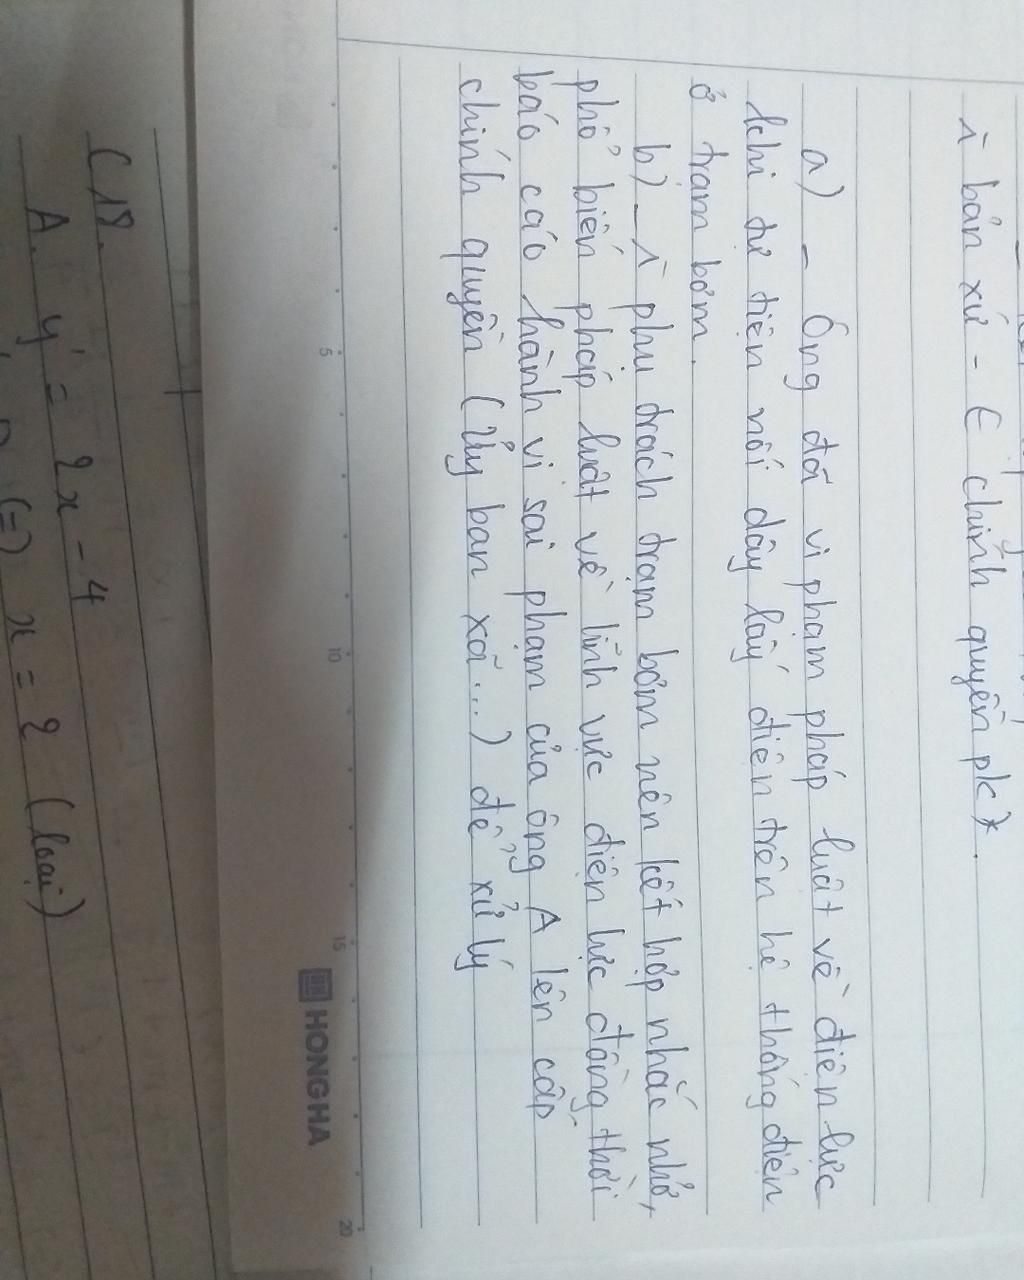 ㅈ bản xứ - E chỉnh quyền pk).
a) - Ông đã vi phạm pháp luật về điện lực
khi tự tiện nối dây lấy điện trên hệ thống điện
ở trạm bơm.
b) - ㅈ phụ trách trạm bơm nên kết hợp nhắc nhở,
phổ biến pháp luật về lĩnh vực điện lực đồng thời
báo cáo hành vi sai phạm của ông A lên cấp
chính quyền (Ủy ban xã...) để xử lý
5 10 15 20
HONG HA
C18.
A. y' = 2x - 4
(=) x = 2 (loại)